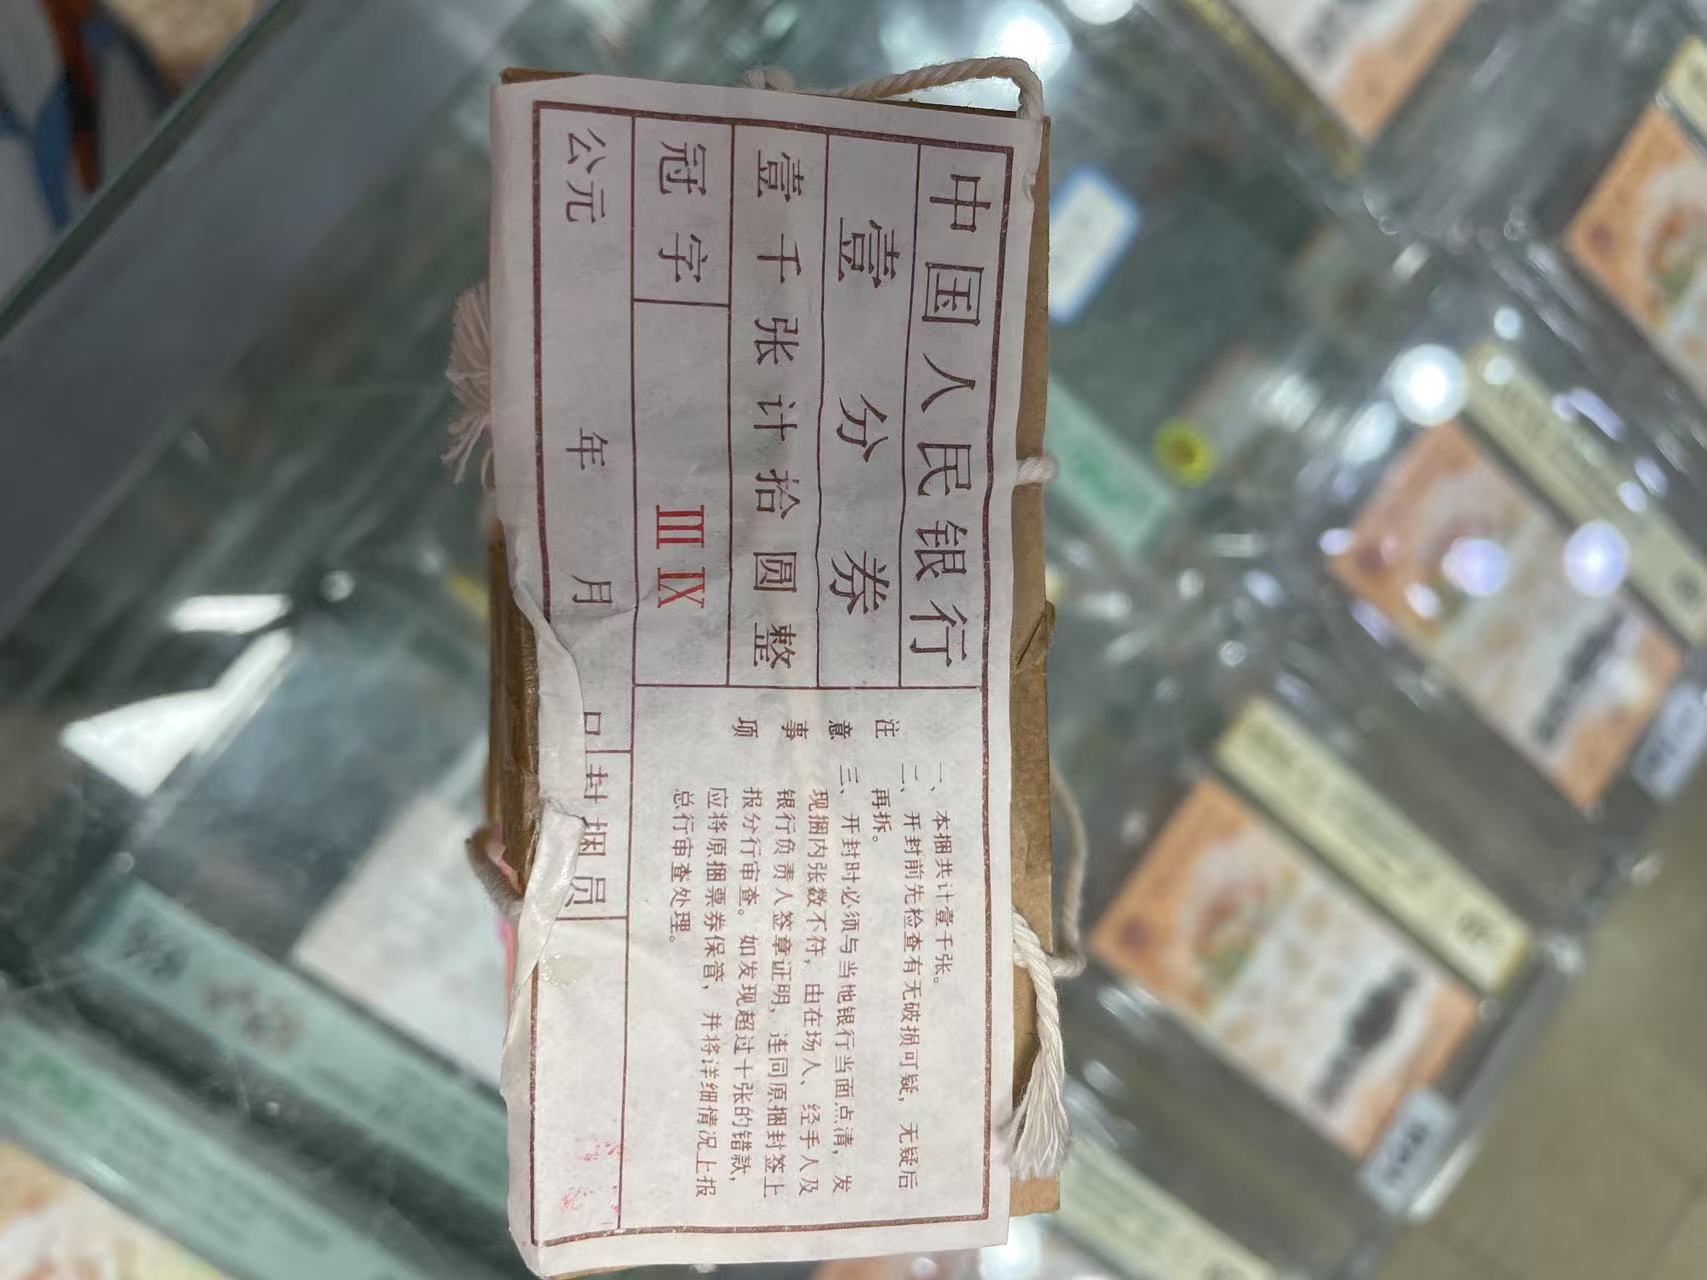 中国人民银行
壹分券
壹千张计拾圆整
冠字 Ⅲ Ⅸ
公元 年 月 日 封捆员
注意事项
一、本捆共计壹千张。
二、开封前先检查有无破损可疑，无疑后
再拆。
三、开封时必须与当地银行当面点清，发
现捆内张数不符，由在场人、经手人及
银行负责人签章证明，连同原捆封签上
报分行审查。如发现超过十张的错款，
应将原捆票券保管，并将详细情况上报
总行审查处理。